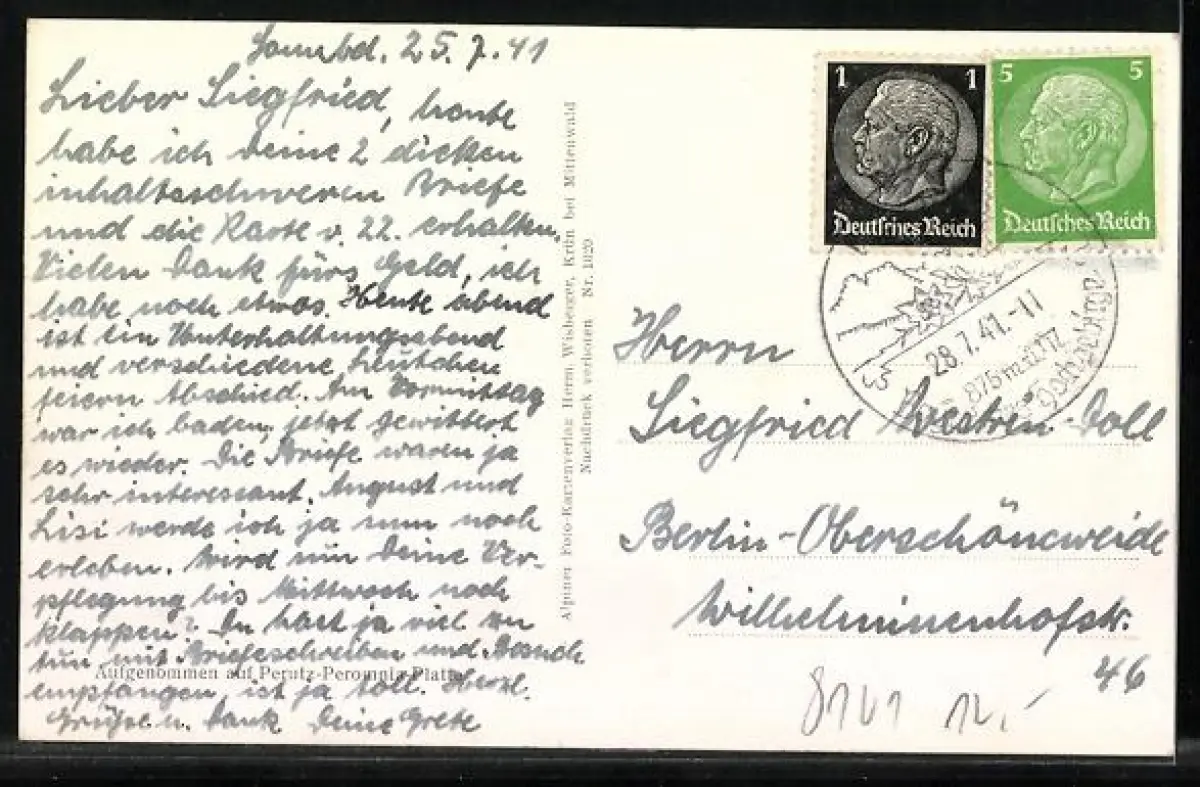 Sonnabd. 25.7.41
Lieber Siegfried, heute
habe ich deine 2 dicken
inhaltsschweren Briefe
und die Karte v. 22. erhalten.
Vielen Dank fürs Geld, ich
habe noch etwas. Heute abend
ist ein Unterhaltungsabend
und verschiedene Leutchen
feiern Abschied. Am Vormittag
war ich baden, jetzt gewittert
es wieder. Die Briefe waren ja
sehr interessant. August und
Lisi werde ich ja nun noch
erleben. Wird nun Deine Ver-
pflegung bis Mittwoch noch
klappen? Du hast ja viel zu
tun mit Briefeschreiben und Besuch
Aufgenommen auf Perutz-Peromnia-Platte
empfangen, ist ja toll. Herzl.
Grüße u. Dank Deine Grete
Alpiner Foto-Kartenverlag Herm. Wisberger, Krün bei Mittenwald
Nachdruck verboten Nr. 1020
1 1
Deutsches Reich
5 5
Deutsches Reich
28.7.41.-11
875 m.ü.M.
Herrn
Siegfried Westren-Doll
Berlin-Oberschöneweide
Wilhelminenhofstr.
46
12.-